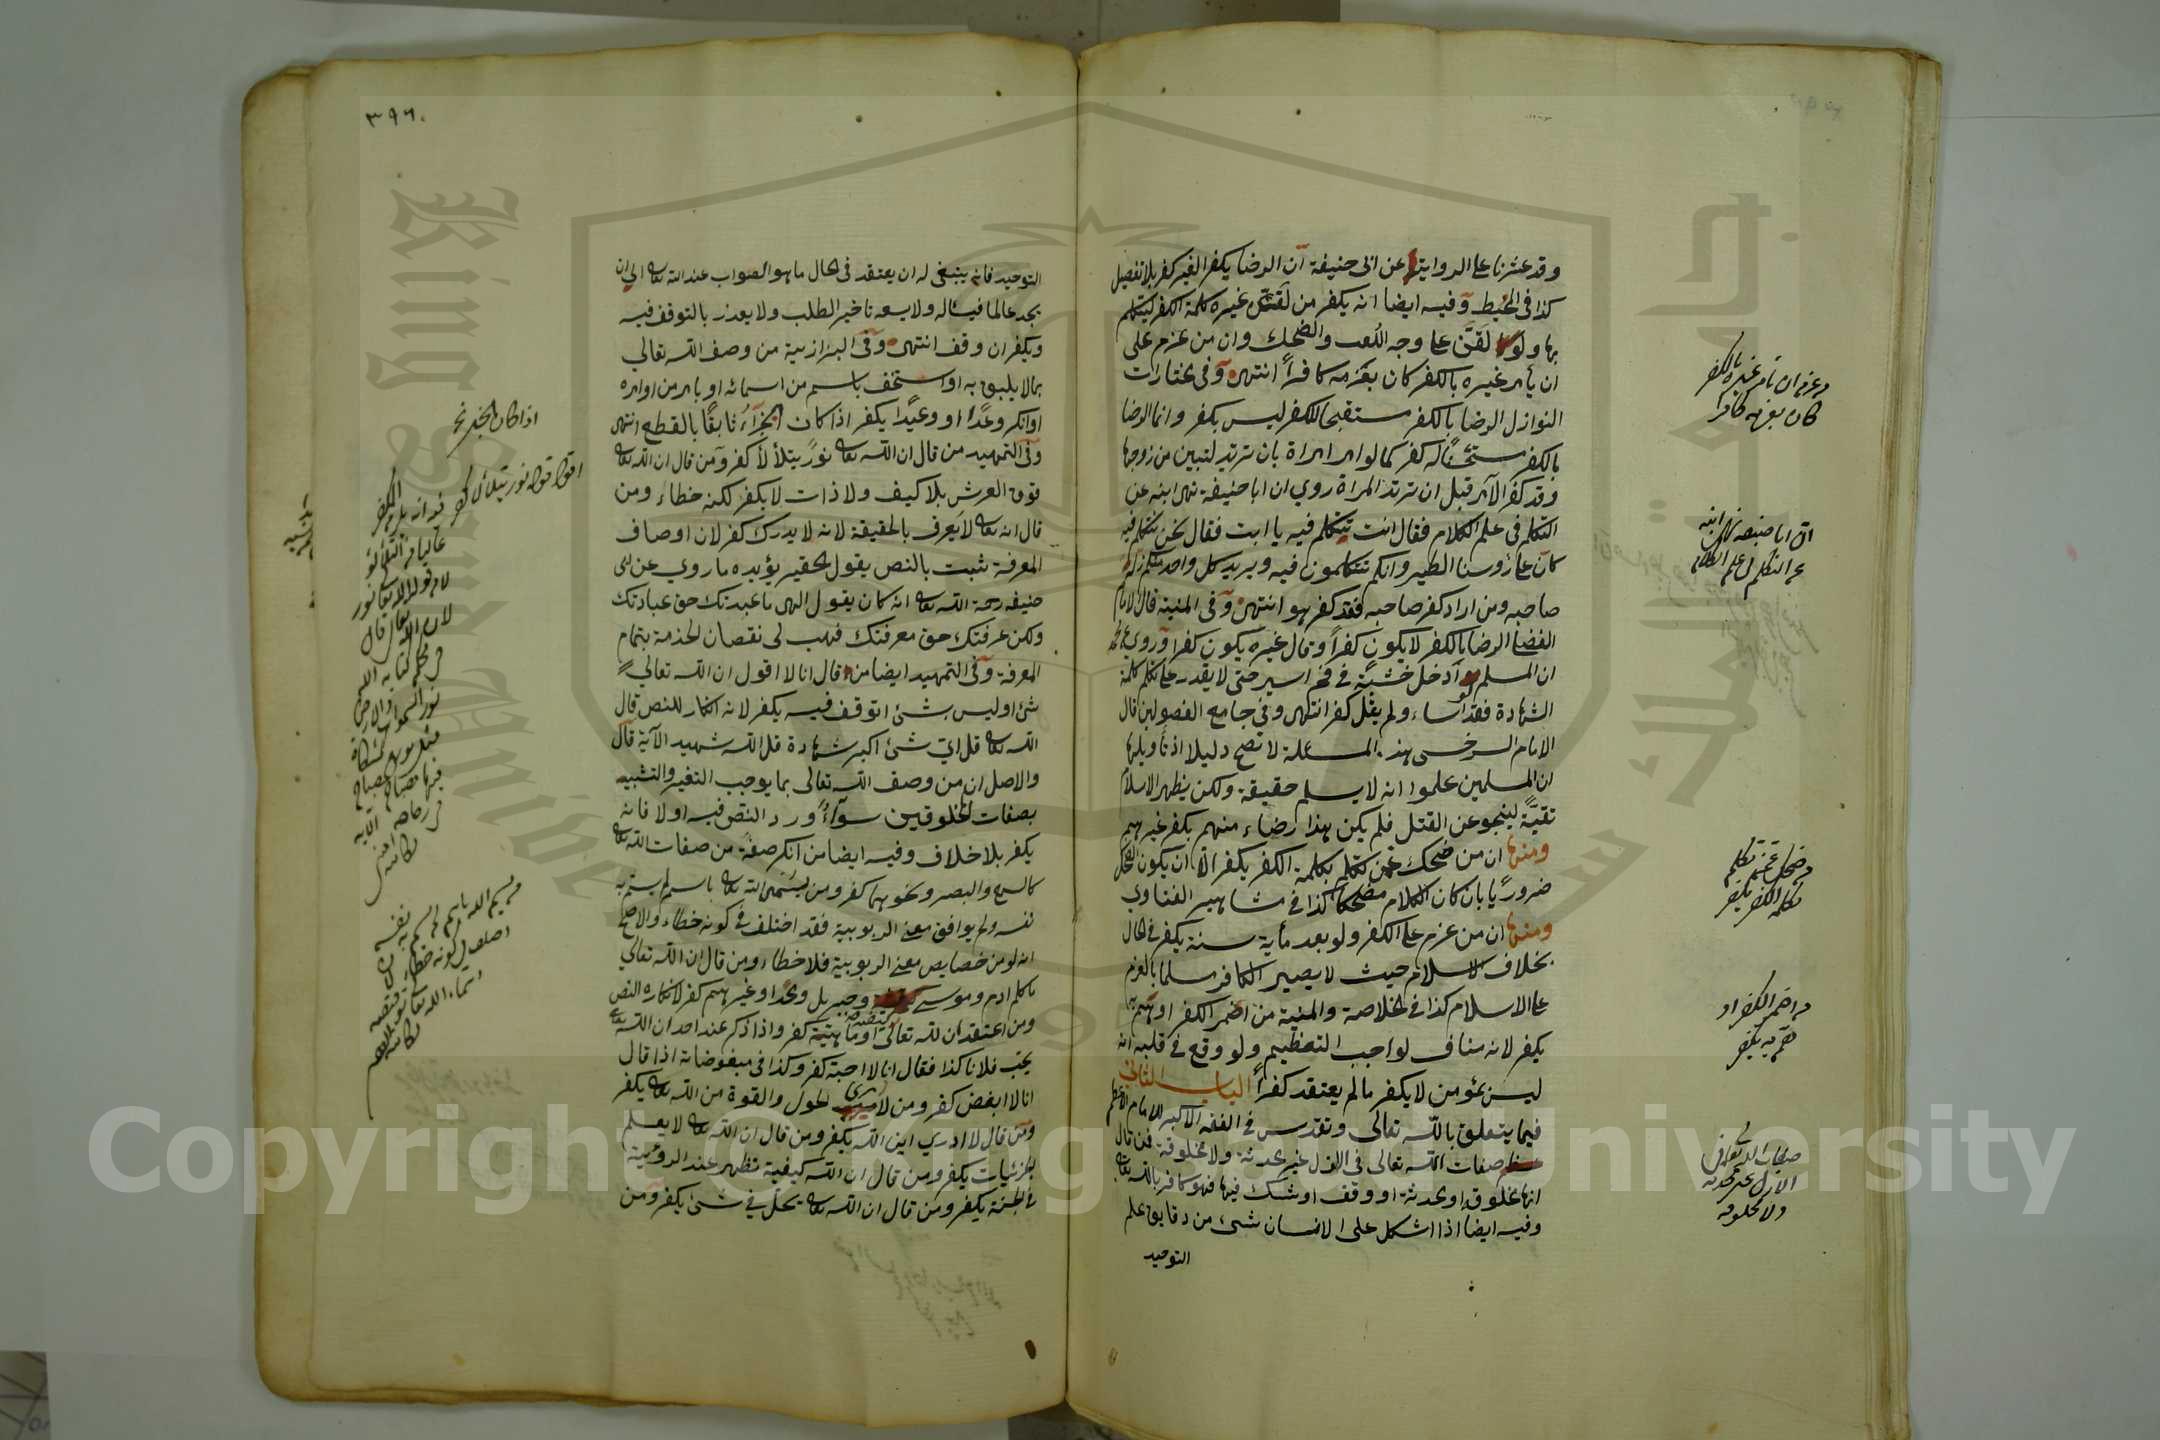 وقد عثرنا على الرواية عن ابى حنيفة ان الرضا بكفر الغير كفر بلا تفصيل
كذا فى المحيط وفيه ايضا انه يكفر من لقن غيره كلمة الكفر ليتكلم
بها ولو لقن على وجه اللعب والضحك وان من عزم على
ان يأمر غيره بالكفر كان بعزمه كافرا انتهى وفى مختارات
النوازل الرضا بالكفر مستقبحا للكفر ليس بكفر وانما الرضا
بالكفر مستحسنا له كفر كما لو امر امراة بان ترتد لتبين من زوجها
وقد كفر الآمر قبل ان ترتد المراة روي ان ابا حنيفة نهى ابنه عن
التكلم فى علم الكلام فقال انت تتكلم فيه يا ابت فقال نحن نتكلم فيه
كأن على رؤسنا الطير وانكم تتكلمون فيه ويريد كل واحد منكم زلة
صاحبه ومن اراد كفر صاحبه فقد كفر هو انتهى وفى المنية قال الامام
الفضلى الرضا بالكفر لا يكون كفرا وقال غيره يكون كفرا وروي عن محمد
ان المسلم لو ادخل خشبة في فم اسير حتى لا يقدر على تكلم كلمة
الشهادة فقد اساء ولم يقل كفر انتهى وفى جامع الفصولين قال
الامام السرخسى هذه المسئلة لا تصح دليلا اذ تأويلها
ان المسلمين علموا انه لا يسلم حقيقة ولكن يظهر الاسلام
تقيّةً لينجو عن القتل فلم يكن هذا رضاء منهم بكفر غيرهم
ومنها ان من ضحك عمن تكلم بكلمة الكفر يكفر الا ان يكون الضحك
ضروريا بان كان الكلام مضحكا كذا في مشاهير الفتاوى
ومنها ان من عزم على الكفر ولو بعد مأية سنة يكفر فى الحال
بخلاف الاسلام حيث لا يصير الكافر مسلما بالعزم
على الاسلام كذا فى الخلاصة والمنية من اضمر الكفر او هم به
يكفر لانه مناف لواجب التعظيم ولو وقع في قلبه انه
ليس بمؤمن لا يكفر ما لم يعتقد كفرا الباب الثانى
فيما يتعلق بالله تعالى وتقدس فى الفقه الاكبر للامام الاعظم
صفات الله تعالى فى الازل غير محدثة ولا مخلوقة فمن قال
انها مخلوقة او محدثة او وقف او شك فيها فهو كافر بالله تعالى
وفيه ايضا اذا اشكل على الانسان شئ من دقايق علم
التوحيد
ومن عزم ان يأمر غيره بالكفر
كان بعزمه كافرا
ان ابا حنيفة نهى ابنه
عن التكلم فى علم الكلام
من ضحك عمن تكلم
بكلمة الكفر يكفر
من اضمر الكفر او
هم به يكفر
صفات الله تعالى فى
الازل غير محدثة
ولا مخلوقة
٣٩٦
التوحيد فانه ينبغى له ان يعتقد فى الحال ما هو الصواب عند الله تعالى الى ان
يجد عالما فيسئاله ولا يسعه تاخير الطلب ولا يعذر بالتوقف فيه
ويكفر ان وقف انتهى وفى البزازية من وصف الله تعالى
بما لا يليق به او استخف باسم من اسمائه او بامر من اوامره
او انكر وعدًا او وعيدًا يكفر اذا كان الجزاء ثابتًا بالقطع انتهى
وفى التمهيد من قال ان الله تعالى نور يتلألأ كفر ومن قال ان الله تعالى
فوق العرش بلا كيف ولا ذات لا يكفر لكنه خطاء ومن
قال انه تعالى لا يعرف بالحقيقة لانه لا يدرك كفر لان اوصاف
المعرفة ثبت بالنص يقول الحقير يؤيده ما روي عن ابى
حنيفه رحمة الله تعالى انه كان يقول الهى ما عبدتك حق عبادتك
ولكن عرفتك حق معرفتك فهب لى نقصان الخدمة بتمام
المعرفة وفى التمهيد ايضا من قال انا لا اقول ان الله تعالى
شئ او ليس بشئ اتوقف فيه يكفر لانه انكار للنص قال
الله تعالى قل اي شئ اكبر شهادة قل الله شهيد الآية قال
والاصل ان من وصف الله تعالى بما يوجب التغير والتشبيه
بصفات المخلوقين سوآء ورد النص فيه او لا فانه
يكفر بلا خلاف وفيه ايضا من انكر صفة من صفات الله تعالى
كالسمع والبصر ونحوهما كفر ومن يسمى الله تعالى باسم لم يسم به
نفسه ولم يوافق معنى الربوبية فقد اختلف في كونه خطاء والاصح
انه لو من خصايص معنى الربوبية فلا خطاء ومن قال ان الله تعالى
ما كلم ادم وموسى وجبريل ومحمدا وغيرهم كفر لانكاره النص
ومن اعتقد ان لله تعالى او ماهيتة كفر واذا ذكر عند احد ان الله تعالى
يحب فلانا كذا فقال انا لا احبه كفر وكذا فى مبغوضاته اذا قال
انا لا ابغض كفر ومن لا يرى الحول والقوة من الله تعالى يكفر
ومن قال لا ادري اين الله يكفر ومن قال ان الله تعالى لا يعلم
الجزئيات يكفر ومن قال ان الله كيفية تظهر عند الرؤية
فى الجنة يكفر ومن قال ان الله تعالى يحل في شئ يكفر ومن
اقول قوله نور يتلألأ كفر
نور السموات والارض
Copyright © King Saud University
King Saud University